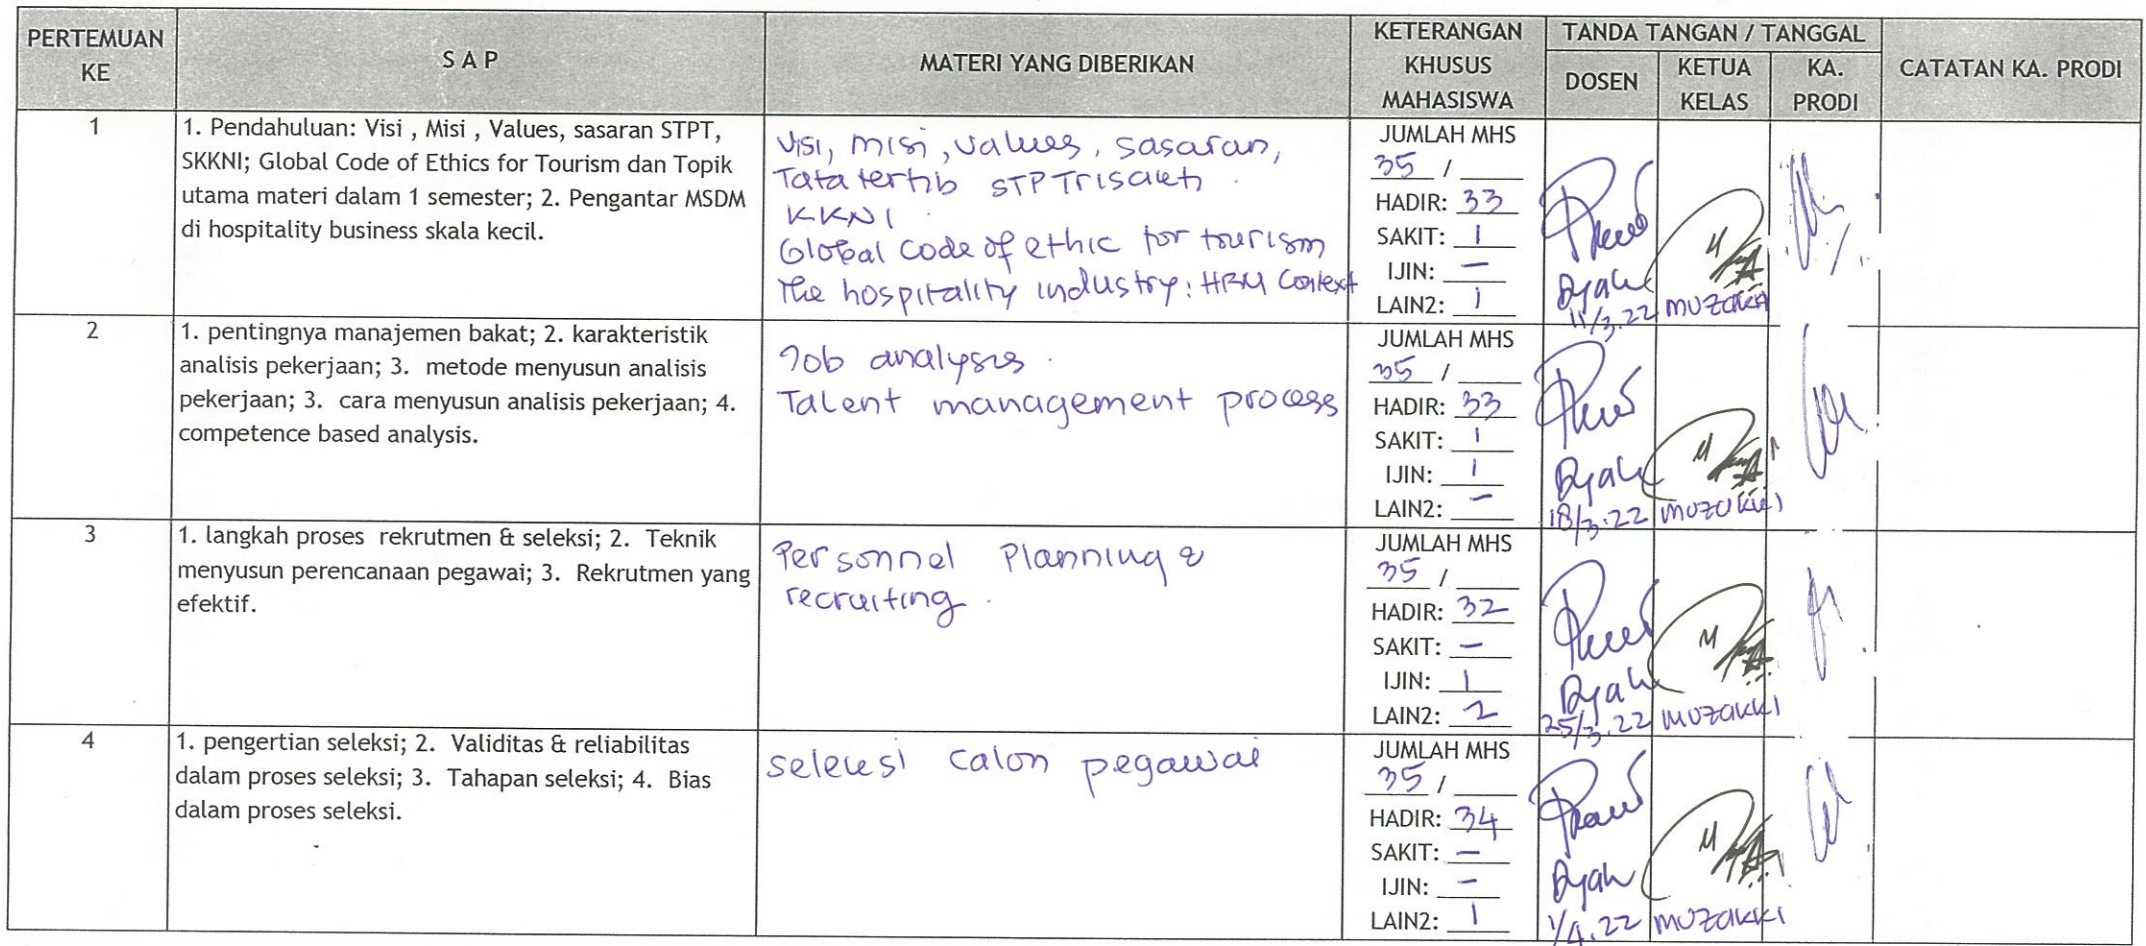 PERTEMUAN KE
S A P
MATERI YANG DIBERIKAN
KETERANGAN KHUSUS MAHASISWA
TANDA TANGAN / TANGGAL
DOSEN
KETUA KELAS
KA. PRODI
CATATAN KA. PRODI
1
1. Pendahuluan: Visi , Misi , Values, sasaran STPT,
SKKNI; Global Code of Ethics for Tourism dan Topik
utama materi dalam 1 semester; 2. Pengantar MSDM
di hospitality business skala kecil.
Visi, misi, values, sasaran,
Tata tertib STP Trisakti.
KKNI.
Global Code of ethic for tourism
The hospitality industry: HRM Context
JUMLAH MHS
35 / ____
HADIR: 33
SAKIT: 1
IJIN: –
LAIN2: 1
Dyah
11/3.22
2
1. pentingnya manajemen bakat; 2. karakteristik
analisis pekerjaan; 3. metode menyusun analisis
pekerjaan; 3. cara menyusun analisis pekerjaan; 4.
competence based analysis.
Job analysis.
Talent management process
JUMLAH MHS
35 / ____
HADIR: 33
SAKIT: 1
IJIN: 1
LAIN2: –
Dyah
18/3.22 MUZAKKI
3
1. langkah proses rekrutmen & seleksi; 2. Teknik
menyusun perencanaan pegawai; 3. Rekrutmen yang
efektif.
Personnel Planning &
recruiting.
JUMLAH MHS
35 / ____
HADIR: 32
SAKIT: –
IJIN: 1
LAIN2: 2
Dyah
25/3.22 MUZAKKI
4
1. pengertian seleksi; 2. Validitas & reliabilitas
dalam proses seleksi; 3. Tahapan seleksi; 4. Bias
dalam proses seleksi.
seleksi calon pegawai
JUMLAH MHS
35 / ____
HADIR: 34
SAKIT: –
IJIN: –
LAIN2: 1
Dyah
1/4.22 MUZAKKI